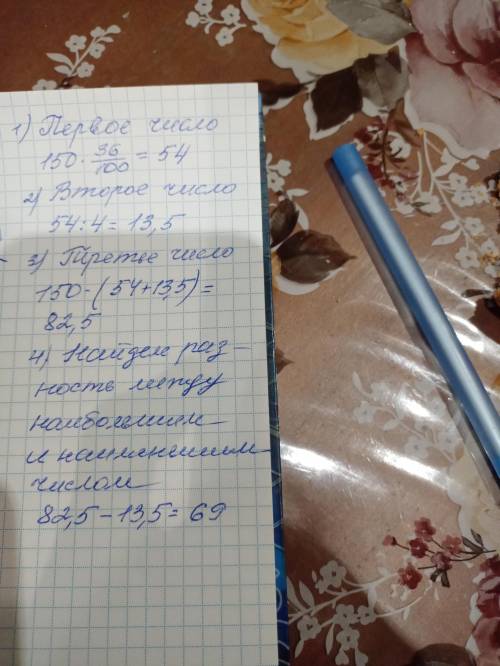 1) Первое число
150 · 36/100 = 54
2) Второе число
54 : 4 = 13,5
3) Третье число
150 - (54+13,5) =
82,5
4) Найдем раз-
ность между
наибольшим
и наименьшим
числом
82,5 - 13,5 = 69